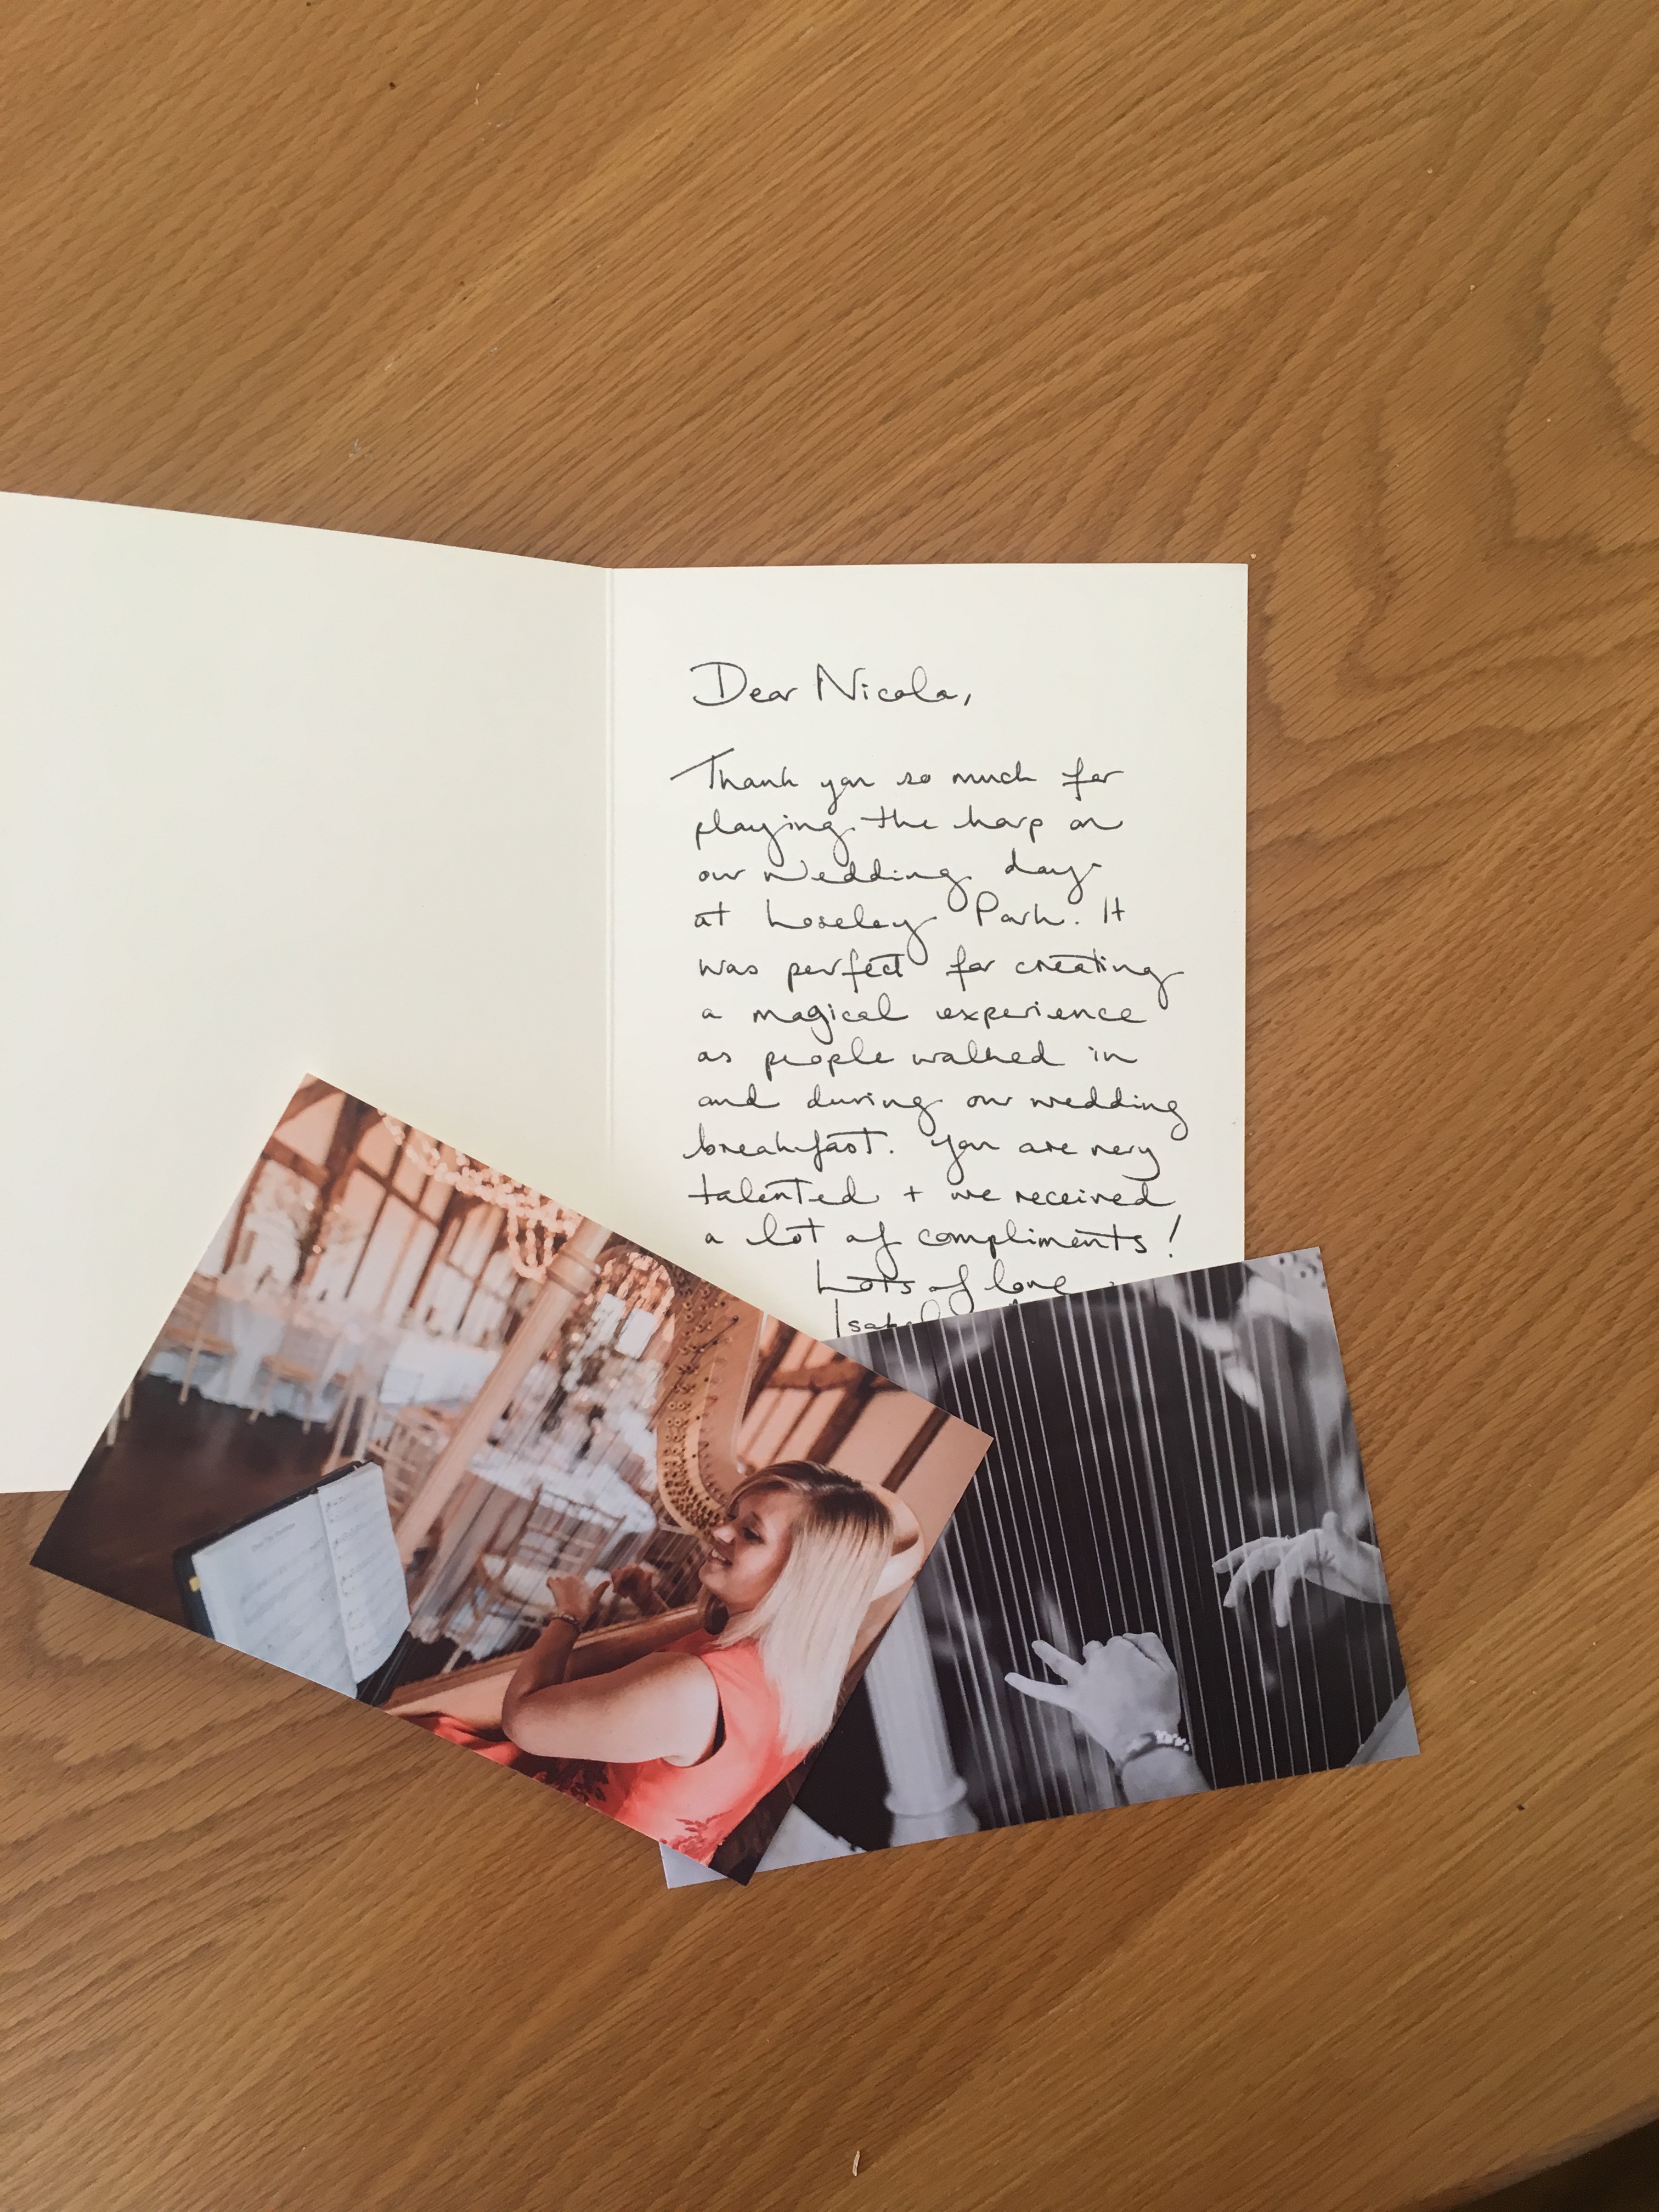 Dear Nicola,
Thank you so much for
playing the harp on
our wedding day
at Loseley Park. It
was perfect for creating
a magical experience
as people walked in
and during our wedding
breakfast. You are very
talented + we received
a lot of compliments!
Lots of love